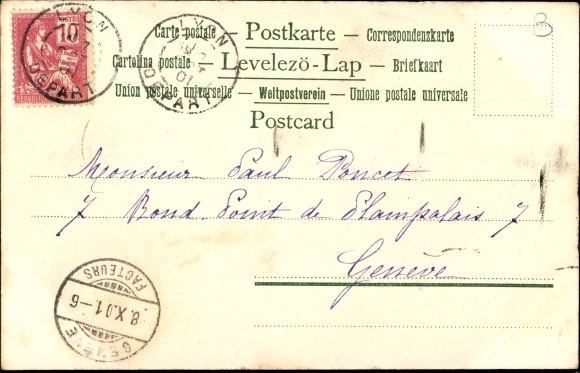 B
LYON
10
POSTES
DEPART
LYON
01
DEPART
Carte postale — Postkarte — Correspondenzkarte
Cartolina postale — Levelező-Lap — Briefkaart
Union postale universelle — Weltpostverein — Unione postale universale
Postcard
Monsieur Paul Poncet
7 Rond-Point de Plainpalais 7
Genève
FACTEURS
8.X.01-6
GENÈVE